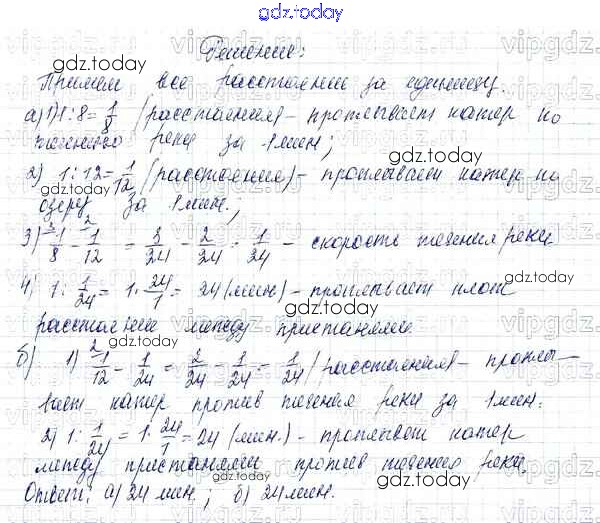 gdz.today
Решение:
Примем все расстояние за единицу.
а) 1) 1 : 8 = 1/8 (расстояния) – проплывает катер по
течению реки за 1 мин;
gdz.today
2) 1 : 12 = 1/12 (расстояния) – проплывает катер по
озеру за 1 мин.;
3) 1/8 - 1/12 = 3/24 - 2/24 = 1/24 – скорость течения реки
4) 1 : 1/24 = 1 · 24/1 = 24 (мин.) – проплывает плот
расстояние между пристанями.
б) 1) 1/12 - 1/24 = 2/24 - 1/24 = 1/24 (расстояния) – проплы–
вает катер против течения реки за 1 мин.
2) 1 : 1/24 = 1 · 24/1 = 24 (мин.) – проплывет катер
между пристанями против течения реки.
Ответ: а) 24 мин.; б) 24 мин.